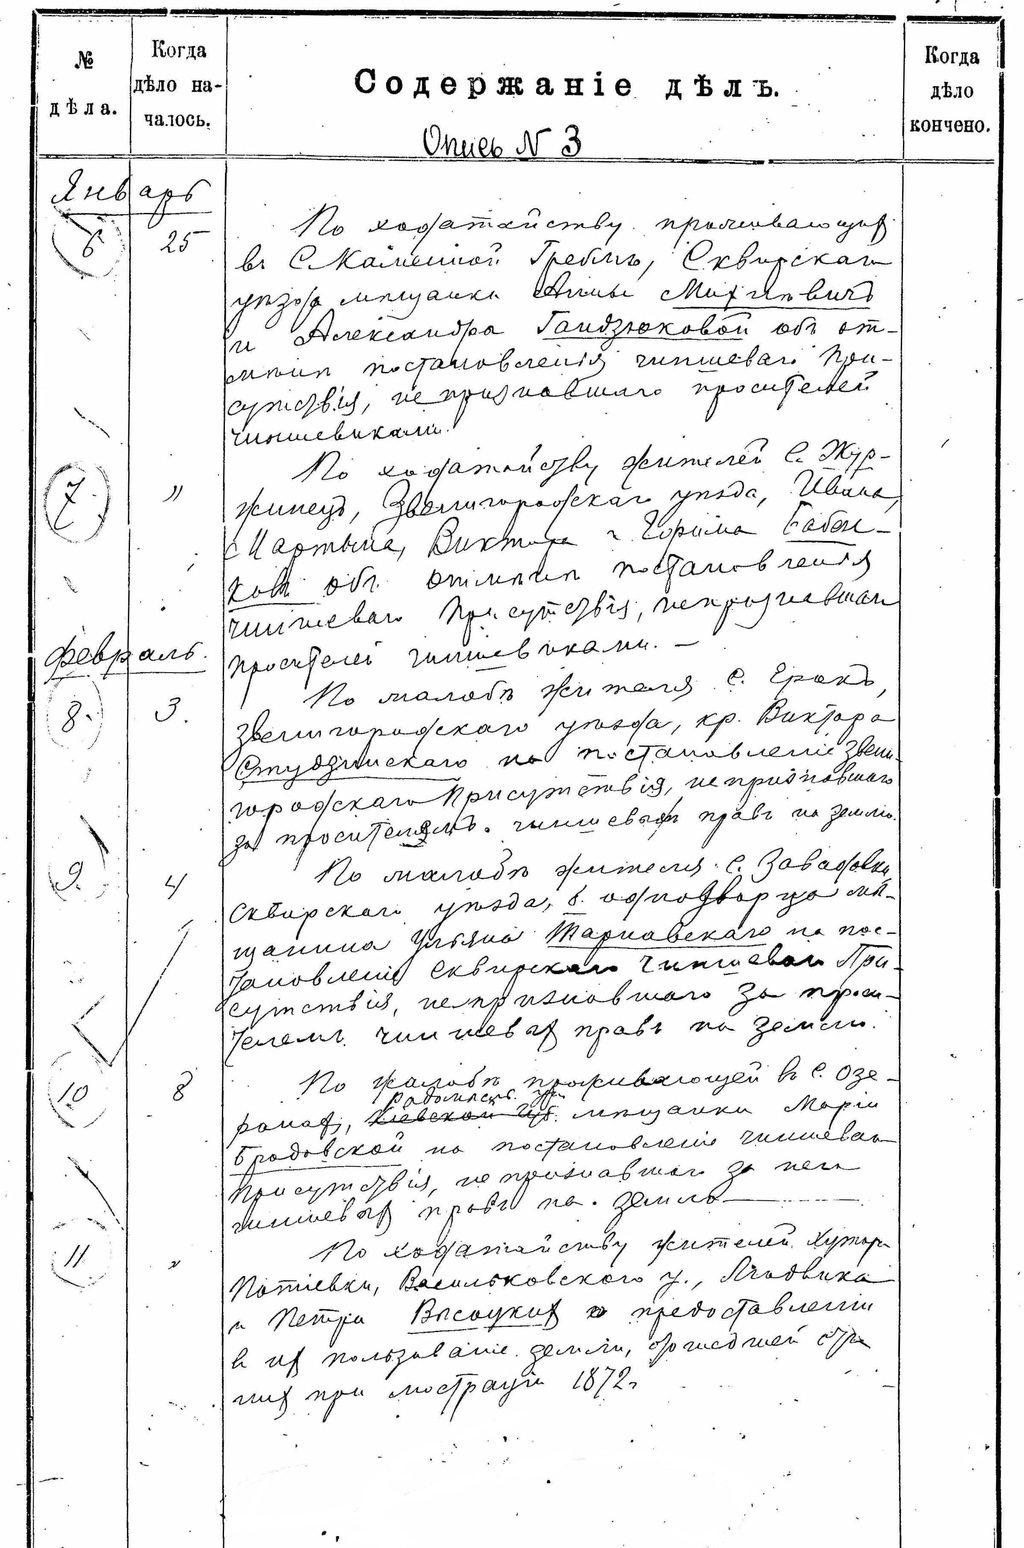 №
дѣла.
Когда
дѣло на-
чалось.
Содержаніе дѣлъ.
Опись N 3
Когда
дѣло
кончено.
Январь
6 25 По ходатайству проживающих
въ с. Каменной Греблѣ, Сквирскаго
уѣзда мѣщанки Анны Михневичъ
и Александра Гандзюковой объ от-
мѣнѣ постановленія чиншеваго При-
сутствія, непризнавшаго просителей
чиншевиками.
7 " По ходатайству жителей с. Жур-
жинецъ, Звенигородскаго уѣзда, Ивана,
Мартына, Виктора и Ефима Бабен-
ковъ объ отмѣнѣ постановленія
чиншеваго Присутствія, непризнавшаго
просителей чиншевиками. —
Февраль.
8. 3. По жалобѣ жителя с. Ерокъ,
Звенигородскаго уѣзда, кр. Виктора
Студзинскаго на постановленіе Звени-
городскаго Присутствія, непризнавшаго
за просителемъ чиншевых правъ на землю.
9. 4 По жалобѣ жителя с. Завадовки,
Сквирскаго уѣзда, б. однодворца мѣ-
щанина Ульяна Тарнавскаго на пос-
тановленіе Сквирскаго Чиншеваго При-
сутствія, непризнавшаго за проси-
телемъ чиншевых правъ на землю.
10 8 По жалобѣ проживающей въ с. Озе-
Радомысл. уѣз.
ранах, Кіевской Губ. мѣщанки Маріи
Бродовской на постановленіе чиншеваго
Присутствія, непризнавшаго за нею
чиншевых правъ на землю —
11 " По ходатайству жителей хутора
Потіевки, Васильковскаго у., Людвика
и Петра Высоцких о предоставленіи
въ их пользованіе земли, отшедшей от
них при люстраціи 1872.